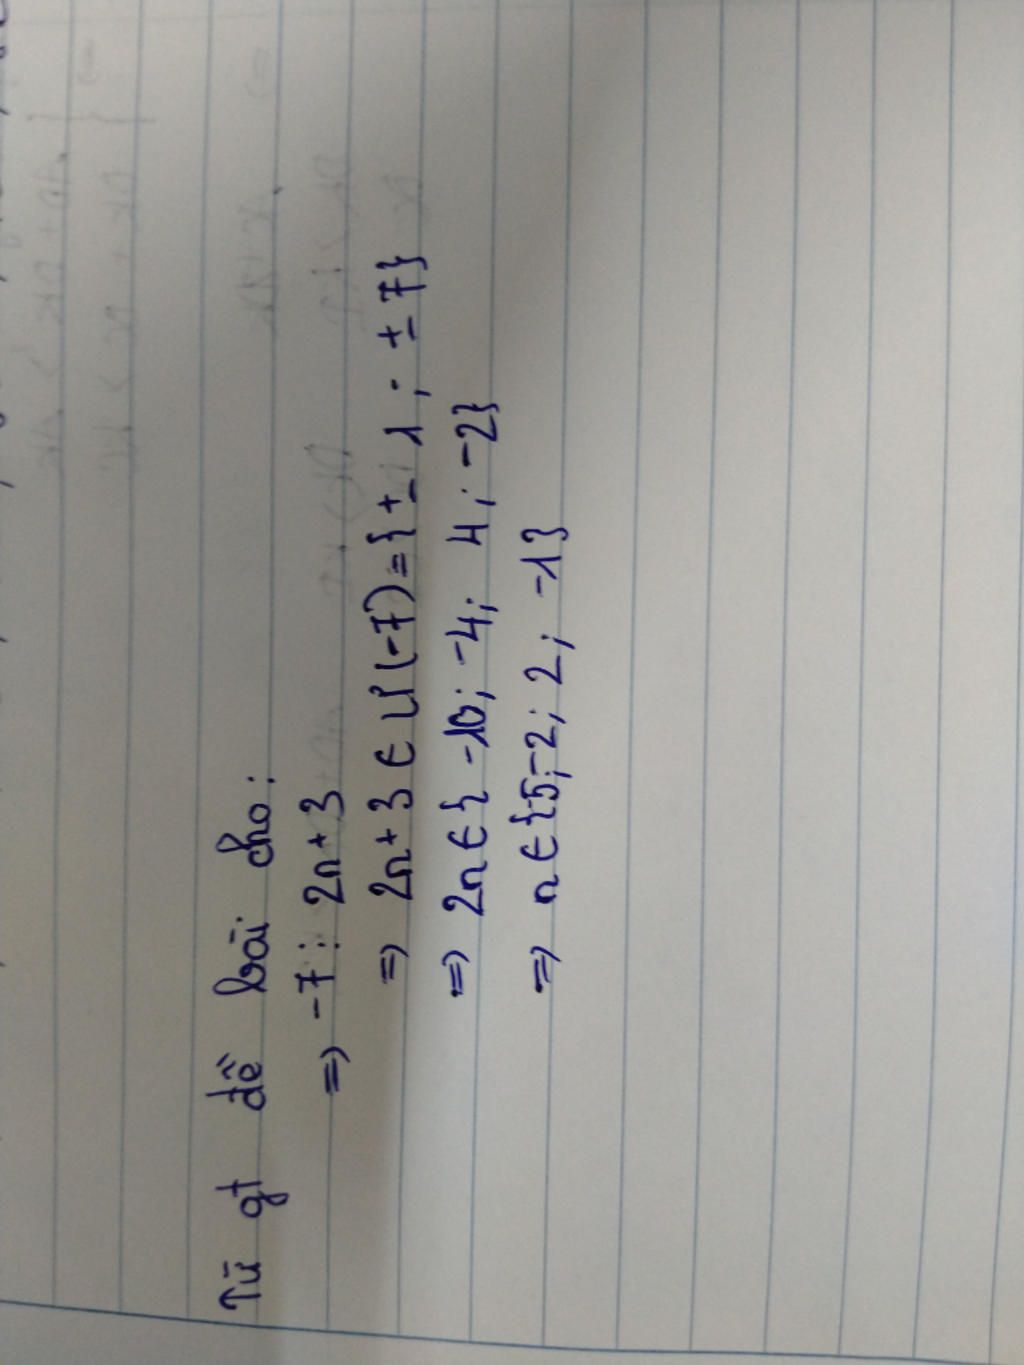 Từ gt đề bài cho:
=> -7 ⋮ 2n+3
=> 2n+3 ∈ Ư(-7)={± 1; ± 7}
=> 2n ∈ { -10; -4; 4; -2}
=> n ∈ {-5; -2; 2; -1}